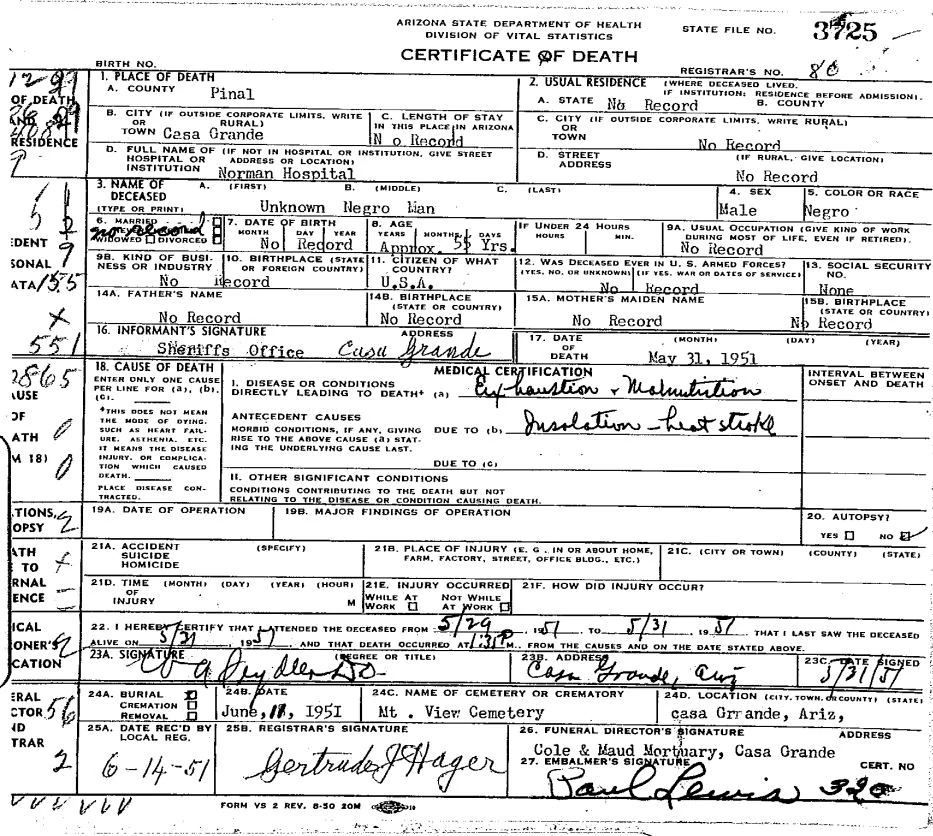 ARIZONA STATE DEPARTMENT OF HEALTH
DIVISION OF VITAL STATISTICS
STATE FILE NO. 3725
CERTIFICATE OF DEATH
BIRTH NO.
REGISTRAR'S NO. 80
1. PLACE OF DEATH
A. COUNTY Pinal
2. USUAL RESIDENCE (WHERE DECEASED LIVED.
IF INSTITUTION: RESIDENCE BEFORE ADMISSION).
A. STATE No Record B. COUNTY
B. CITY (IF OUTSIDE CORPORATE LIMITS, WRITE
OR RURAL)
TOWN Casa Grande
C. LENGTH OF STAY
IN THIS PLACE IN ARIZONA
N o Record
C. CITY (IF OUTSIDE CORPORATE LIMITS, WRITE RURAL)
OR
TOWN No Record
D. FULL NAME OF (IF NOT IN HOSPITAL OR INSTITUTION, GIVE STREET
HOSPITAL OR ADDRESS OR LOCATION)
INSTITUTION Norman Hospital
D. STREET (IF RURAL, GIVE LOCATION)
ADDRESS
No Record
3. NAME OF A. (FIRST) B. (MIDDLE) C. (LAST)
DECEASED
(TYPE OR PRINT) Unknown Negro Man
4. SEX
Male
5. COLOR OR RACE
Negro
6. MARRIED
WIDOWED DIVORCED
7. DATE OF BIRTH
MONTH DAY YEAR
No Record
8. AGE
YEARS MONTHS DAYS
Approx. 55 Yrs.
IF UNDER 24 HOURS
HOURS MIN.
9A. USUAL OCCUPATION (GIVE KIND OF WORK
DURING MOST OF LIFE, EVEN IF RETIRED).
No Record
9B. KIND OF BUSI-
NESS OR INDUSTRY
10. BIRTHPLACE (STATE
OR FOREIGN COUNTRY)
No Record
11. CITIZEN OF WHAT
COUNTRY?
U.S.A.
12. WAS DECEASED EVER IN U. S. ARMED FORCES?
(YES, NO, OR UNKNOWN) (IF YES, WAR OR DATES OF SERVICE)
No Record
13. SOCIAL SECURITY
NO.
None
14A. FATHER'S NAME
No Record
14B. BIRTHPLACE
(STATE OR COUNTRY)
No Record
15A. MOTHER'S MAIDEN NAME
No Record
15B. BIRTHPLACE
(STATE OR COUNTRY)
No Record
16. INFORMANT'S SIGNATURE ADDRESS
Sheriffs Office Casa Grande
17. DATE (MONTH) (DAY) (YEAR)
OF
DEATH May 31, 1951
18. CAUSE OF DEATH
ENTER ONLY ONE CAUSE
PER LINE FOR (a), (b),
(c).
*THIS DOES NOT MEAN
THE MODE OF DYING,
SUCH AS HEART FAIL-
URE, ASTHENIA, ETC.
IT MEANS THE DISEASE
INJURY, OR COMPLICA-
TION WHICH CAUSED
DEATH.
PLACE DISEASE CON-
TRACTED.
MEDICAL CERTIFICATION
I. DISEASE OR CONDITIONS
DIRECTLY LEADING TO DEATH* (a) Exhaustion + Malnutrition
ANTECEDENT CAUSES
MORBID CONDITIONS, IF ANY, GIVING
RISE TO THE ABOVE CAUSE (a) STAT-
ING THE UNDERLYING CAUSE LAST.
DUE TO (b) Insolation - heat stroke
DUE TO (c)
II. OTHER SIGNIFICANT CONDITIONS
CONDITIONS CONTRIBUTING TO THE DEATH BUT NOT
RELATING TO THE DISEASE OR CONDITION CAUSING DEATH.
INTERVAL BETWEEN
ONSET AND DEATH
19A. DATE OF OPERATION
19B. MAJOR FINDINGS OF OPERATION
20. AUTOPSY?
YES NO
21A. ACCIDENT (SPECIFY)
SUICIDE
HOMICIDE
21B. PLACE OF INJURY (E. G., IN OR ABOUT HOME,
FARM, FACTORY, STREET, OFFICE BLDG., ETC.)
21C. (CITY OR TOWN) (COUNTY) (STATE)
21D. TIME (MONTH) (DAY) (YEAR) (HOUR)
OF
INJURY M
21E. INJURY OCCURRED
WHILE AT NOT WHILE
WORK AT WORK
21F. HOW DID INJURY OCCUR?
22. I HEREBY CERTIFY THAT I ATTENDED THE DECEASED FROM 5/29 1951 TO 5/31 1951 THAT I LAST SAW THE DECEASED
ALIVE ON 5/31 1951 AND THAT DEATH OCCURRED AT 1:35P M., FROM THE CAUSES AND ON THE DATE STATED ABOVE.
23A. SIGNATURE (DEGREE OR TITLE)
23B. ADDRESS
Casa Grande, Ariz
23C. DATE SIGNED
5/31/51
24A. BURIAL
CREMATION
REMOVAL
24B. DATE
June, 1951
24C. NAME OF CEMETERY OR CREMATORY
Mt . View Cemetery
24D. LOCATION (CITY, TOWN, OR COUNTY) (STATE)
casa Grrande, Ariz,
25A. DATE REC'D BY
LOCAL REG.
6-14-51
25B. REGISTRAR'S SIGNATURE
Gertrude J Hager
26. FUNERAL DIRECTOR'S SIGNATURE ADDRESS
Cole & Maud Mortuary, Casa Grande
27. EMBALMER'S SIGNATURE CERT. NO
Paul Lewis 320
FORM VS 2 REV. 8-50 20M